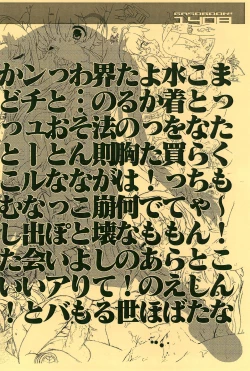 まったくも～！こんな
ことならちゃんとした
水着を買ってもらえば
よかった！でもあのほ
たるの胸は何もの！世
界の法則が崩壊してる
わ…そんなことよりも
っとおとなっぽいアバ
ンチュールな出会いと
かどっとこむしたい！